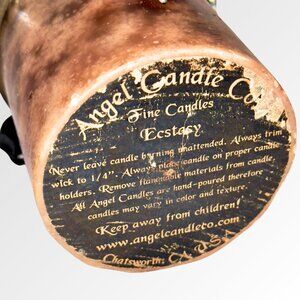 Angel Candle Co.
Fine Candles
Ecstasy
Never leave candle burning unattended. Always trim
wick to 1/4". Always place candle on proper candle
holders. Remove flammable materials from candle.
All Angel Candles are hand-poured therefore
candles may vary in color and texture.
Keep away from children!
www.angelcandleco.com
Chatsworth, CA USA